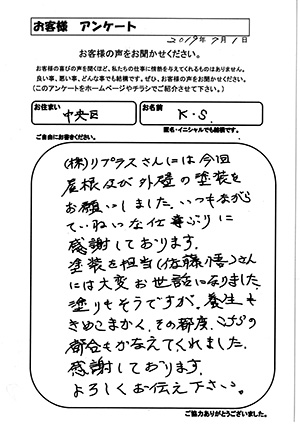 お客様 アンケート
2019年9月1日
お客様の声をお聞かせください。
お客様の喜びの声を聞くほど、私たちの仕事に情熱を与えてくれるものはありません。
良い事、悪い事、どんな事でも結構です。ぜひ、お客様の声をお聞かせください。
(このアンケートをホームページやチラシでご紹介させて下さい。)
お住まい
中央区
お名前
K・S.
ご自由にお書きください。
匿名・イニシャルでも結構です。
(株)リプラスさんには今回
屋根及び外壁の塗装を
お願いしました。いつもながら
ていねいな仕事ぶりに
感謝しております。
塗装を担当(佐藤悟)さん
には大変お世話になりました。
塗りもそうですが、養生も
きめこまかく、その都度、こちらの
都合もかなえてくれました。
感謝しております。
よろしくお伝え下さい。
ご協力ありがとうございました。